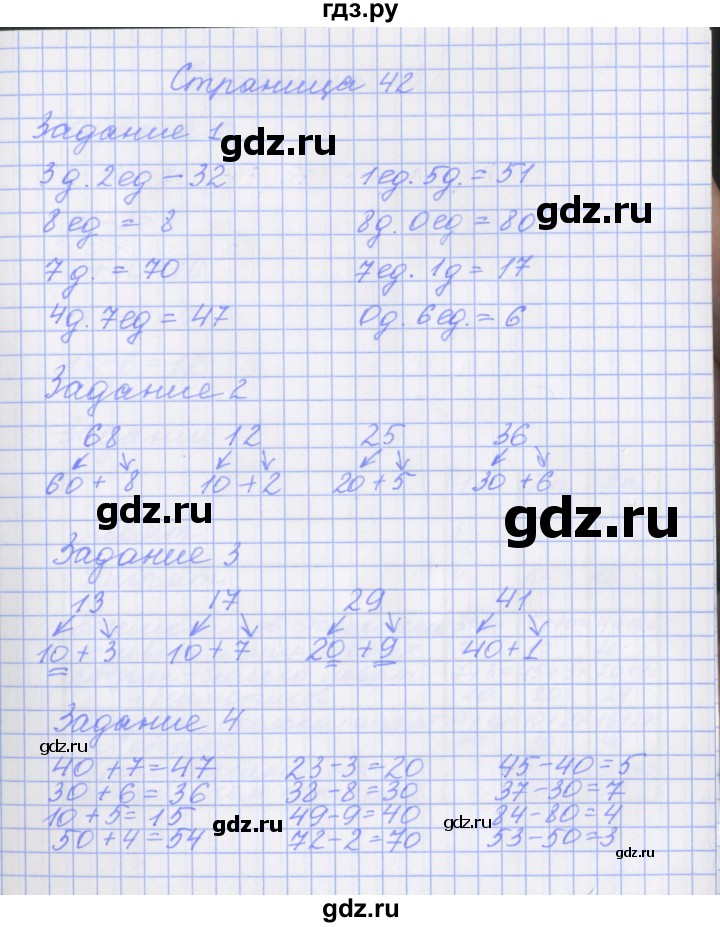 гдз.ру
Страница 42
Задание 1
gdz.ru
3д. 2ед – 32 1ед. 5д. = 51
gdz.ru
8ед = 8 8д. 0ед = 80
7д. = 70 7ед. 1д = 17
4д. 7ед = 47 0д. 6ед. = 6
Задание 2
68 12 25 36
60 + 8 10 + 2 20 + 5 30 + 6
gdz.ru gdz.ru gdz.ru
Задание 3
13 17 29 41
10 + 3 10 + 7 20 + 9 40 + 1
Задание 4
gdz.ru
40 + 7 = 47 23 – 3 = 20 45 – 40 = 5
30 + 6 = 36 38 – 8 = 30 37 – 30 = 7
10 + 5 = 15 49 – 9 = 40 84 – 80 = 4
gdz.ru gdz.ru
50 + 4 = 54 72 – 2 = 70 53 – 50 = 3
gdz.ru
gdz.ru